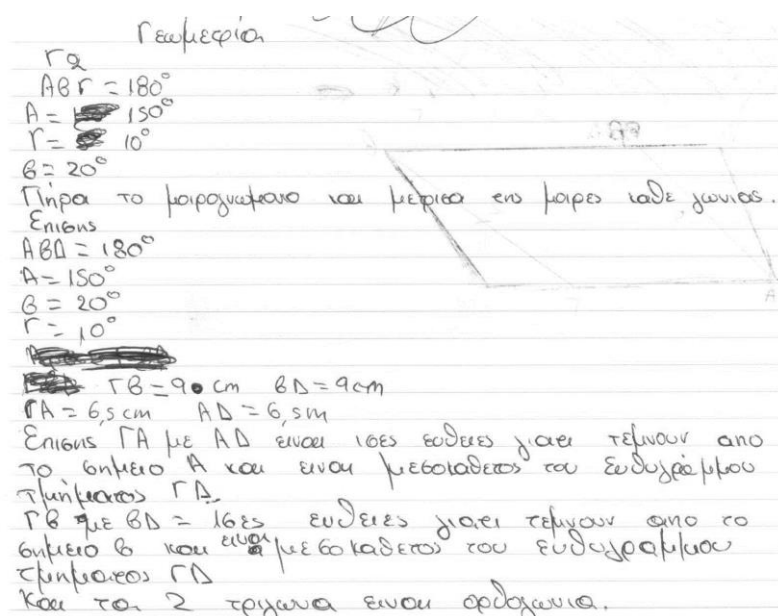 Γεωμετρία
Γ2
ΑΒΓ = 180°
Α = 150°
Γ = 10°
Β = 20°
Πηρα το μοιρογνωμονιο και μετρισα της μοιρες καθε γωνιας.
Επισης
ΑΒΔ = 180°
Α = 150°
Β = 20°
Γ = 10°
ΓΒ = 9 cm ΒΔ = 9cm
ΓΑ = 6,5 cm ΑΔ = 6,5m
Επισης ΓΑ με ΑΔ ειναι ισες ευθειες γιατι τεμνουν απο
το σημειο Α και ειναι μεσοκαθετος του ευθυγράμμου
τμήματος ΓΔ.
ΓΒ με ΒΔ = ισες ευθειες γιατι τεμνουν απο το
σημειο Β και ειναι μεσοκαθετος του ευθυγραμμου
τμηματος ΓΔ
Και τα 2 τριγωνα ειναι ορθογωνια.
Α